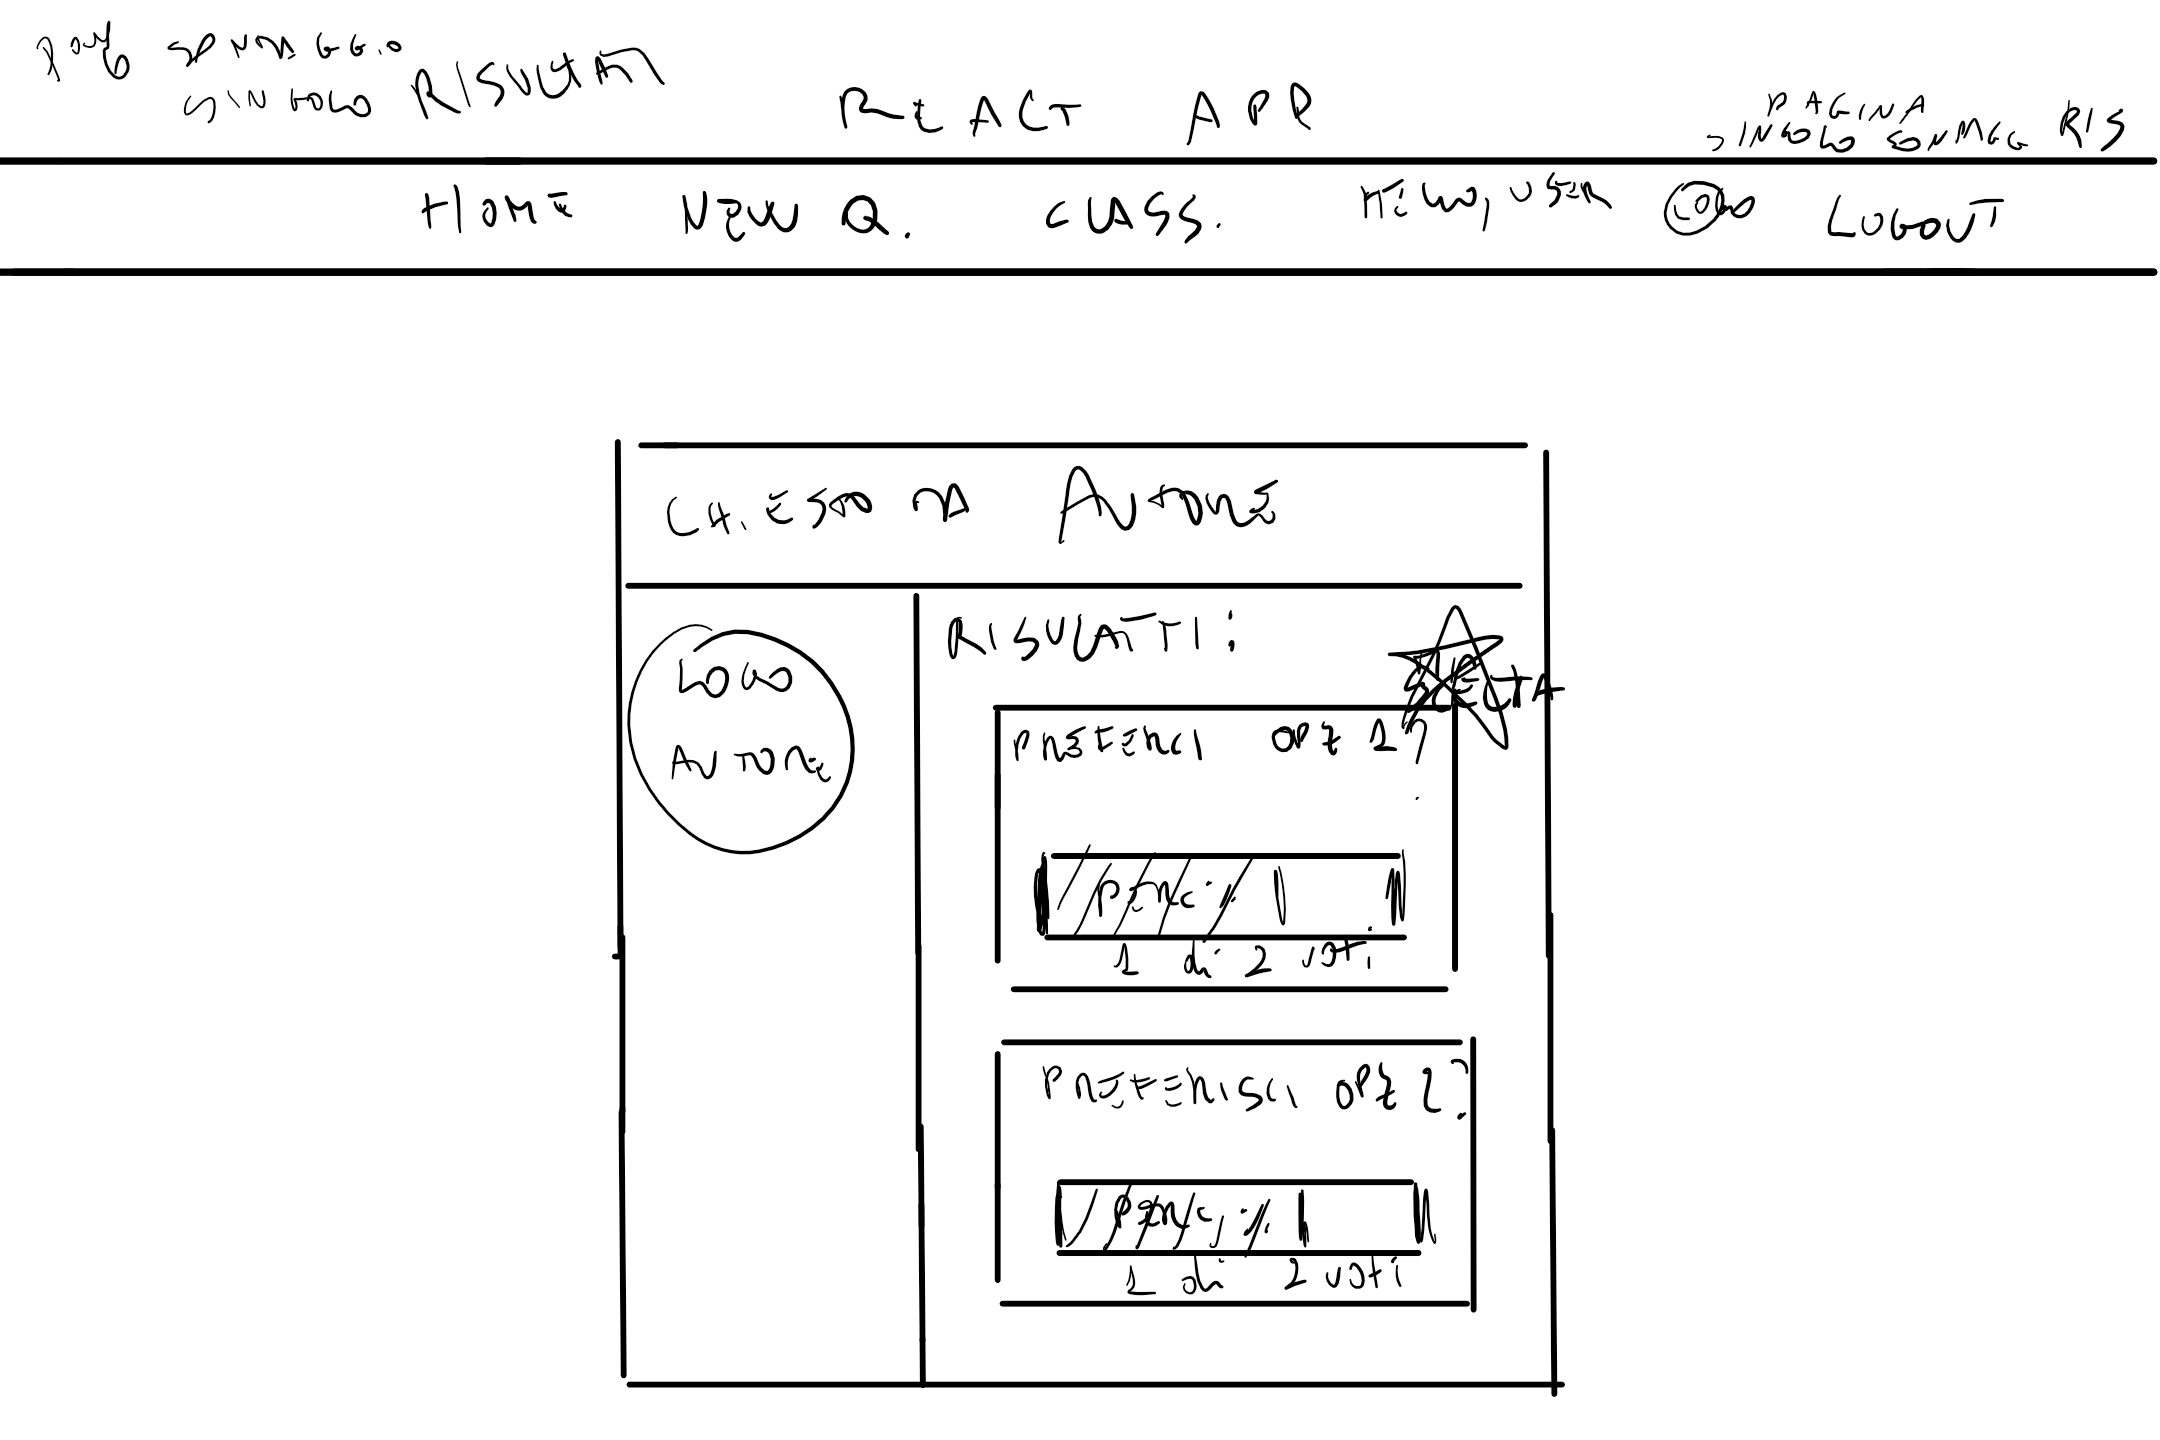 RISULTATI
SINGOLO
REACT APP
PAGINA
SINGOLO SONMGG RIS
HOME NEW Q. CLASS. HELLO, USER LOGO LOGOUT
CHIESTO DA AUTORE
LOGO
AUTORE
RISULATTI:
SCELTA
PREFERCI OPZ 1?
PERC %
1 di 2 voti
PREFERISCI OPZ 2?
PERC, %
1 di 2 voti